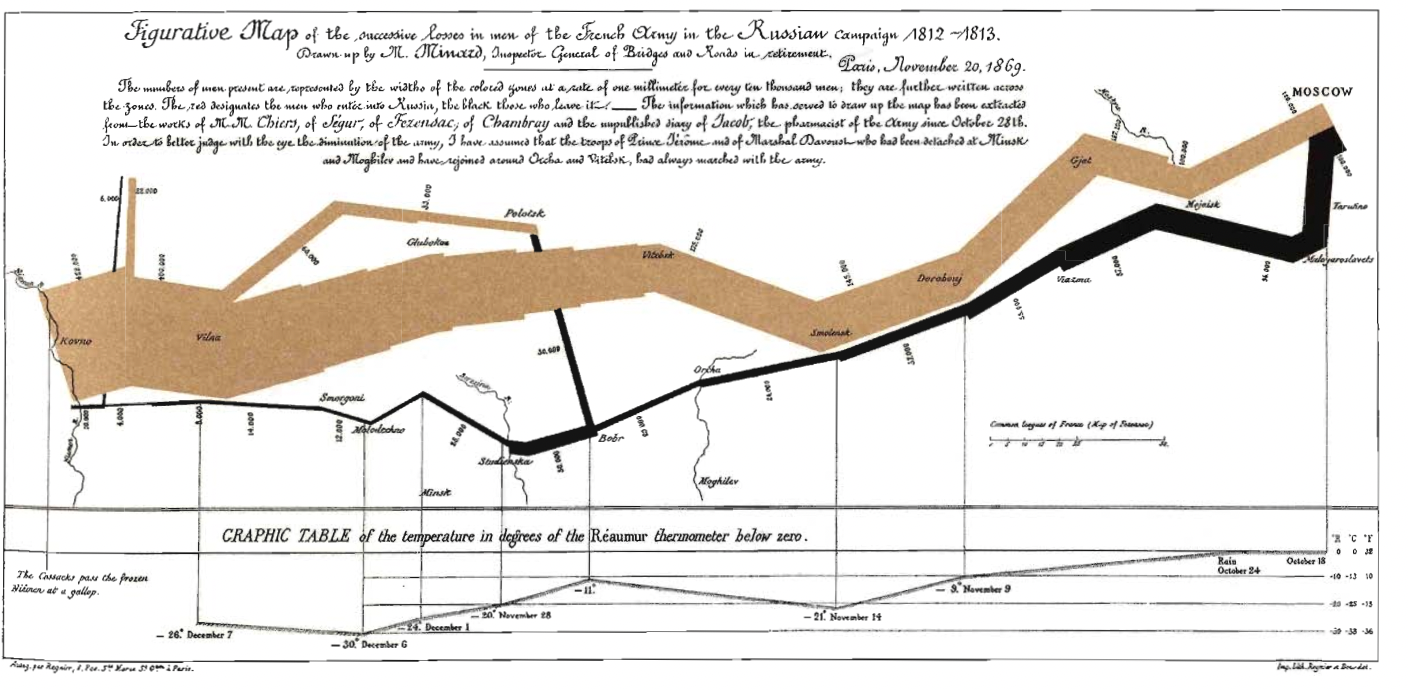 Figurative Map of the successive losses in men of the French Army in the Russian campaign 1812~1813.
Drawn up by M. Minard, Inspector General of Bridges and Roads in retirement.
Paris, November 20, 1869.
The numbers of men present are represented by the widths of the colored zones at a rate of one millimeter for every ten thousand men; they are further written across
the zones. The red designates the men who enter into Russia, the black those who leave it. ___ The information which has served to draw up the map has been extracted
from the works of M. M. Chiers, of Ségur, of Fezensac, of Chambray and the unpublished diary of Jacob, the pharmacist of the Army since October 28th.
In order to better judge with the eye the diminution of the army, I have assumed that the troops of Prince Jérôme and of Marshal Davoust who had been detached at Minsk
and Moghilev and have rejoined around Orcha and Vitebsk, had always marched with the army.
MOSCOW
100.000
100.000
127.100
100.000
Gjat
Mojaisk
Tarutino
Malo-jaroslavets
6.000
22.000
33.000
Polotsk
60.000
Glubokoe
422.000
400.000
175.000
Vitebsk
145.000
Dorobouj
Viazma
Kovno
Vilna
Smolensk
30.000
Orcha
Smorgoni
Molodechno
Studienska
Bobr
4.000
8.000
14.000
12.000
50.000
24.000
37.000
55.000
Minsk
Moghilev
Common leagues of France (Map of Fezensac)
GRAPHIC TABLE of the temperature in degrees of the Réaumur thermometer below zero.
°R °C °F
0 0 32
-10 -13 10
-20 -25 -13
-30 -38 -36
The Cossacks pass the frozen
Niémen at a gallop.
Rain
October 24
October 18
— 9.° November 9
— 21.° November 14
— 11.°
— 20.° November 28
— 24.° December 1
— 30.° December 6
— 26.° December 7
Autog. par Regnier, 8. Pas. Ste Marie St Gain à Paris.
Imp. Lith. Regnier et Dourdet.